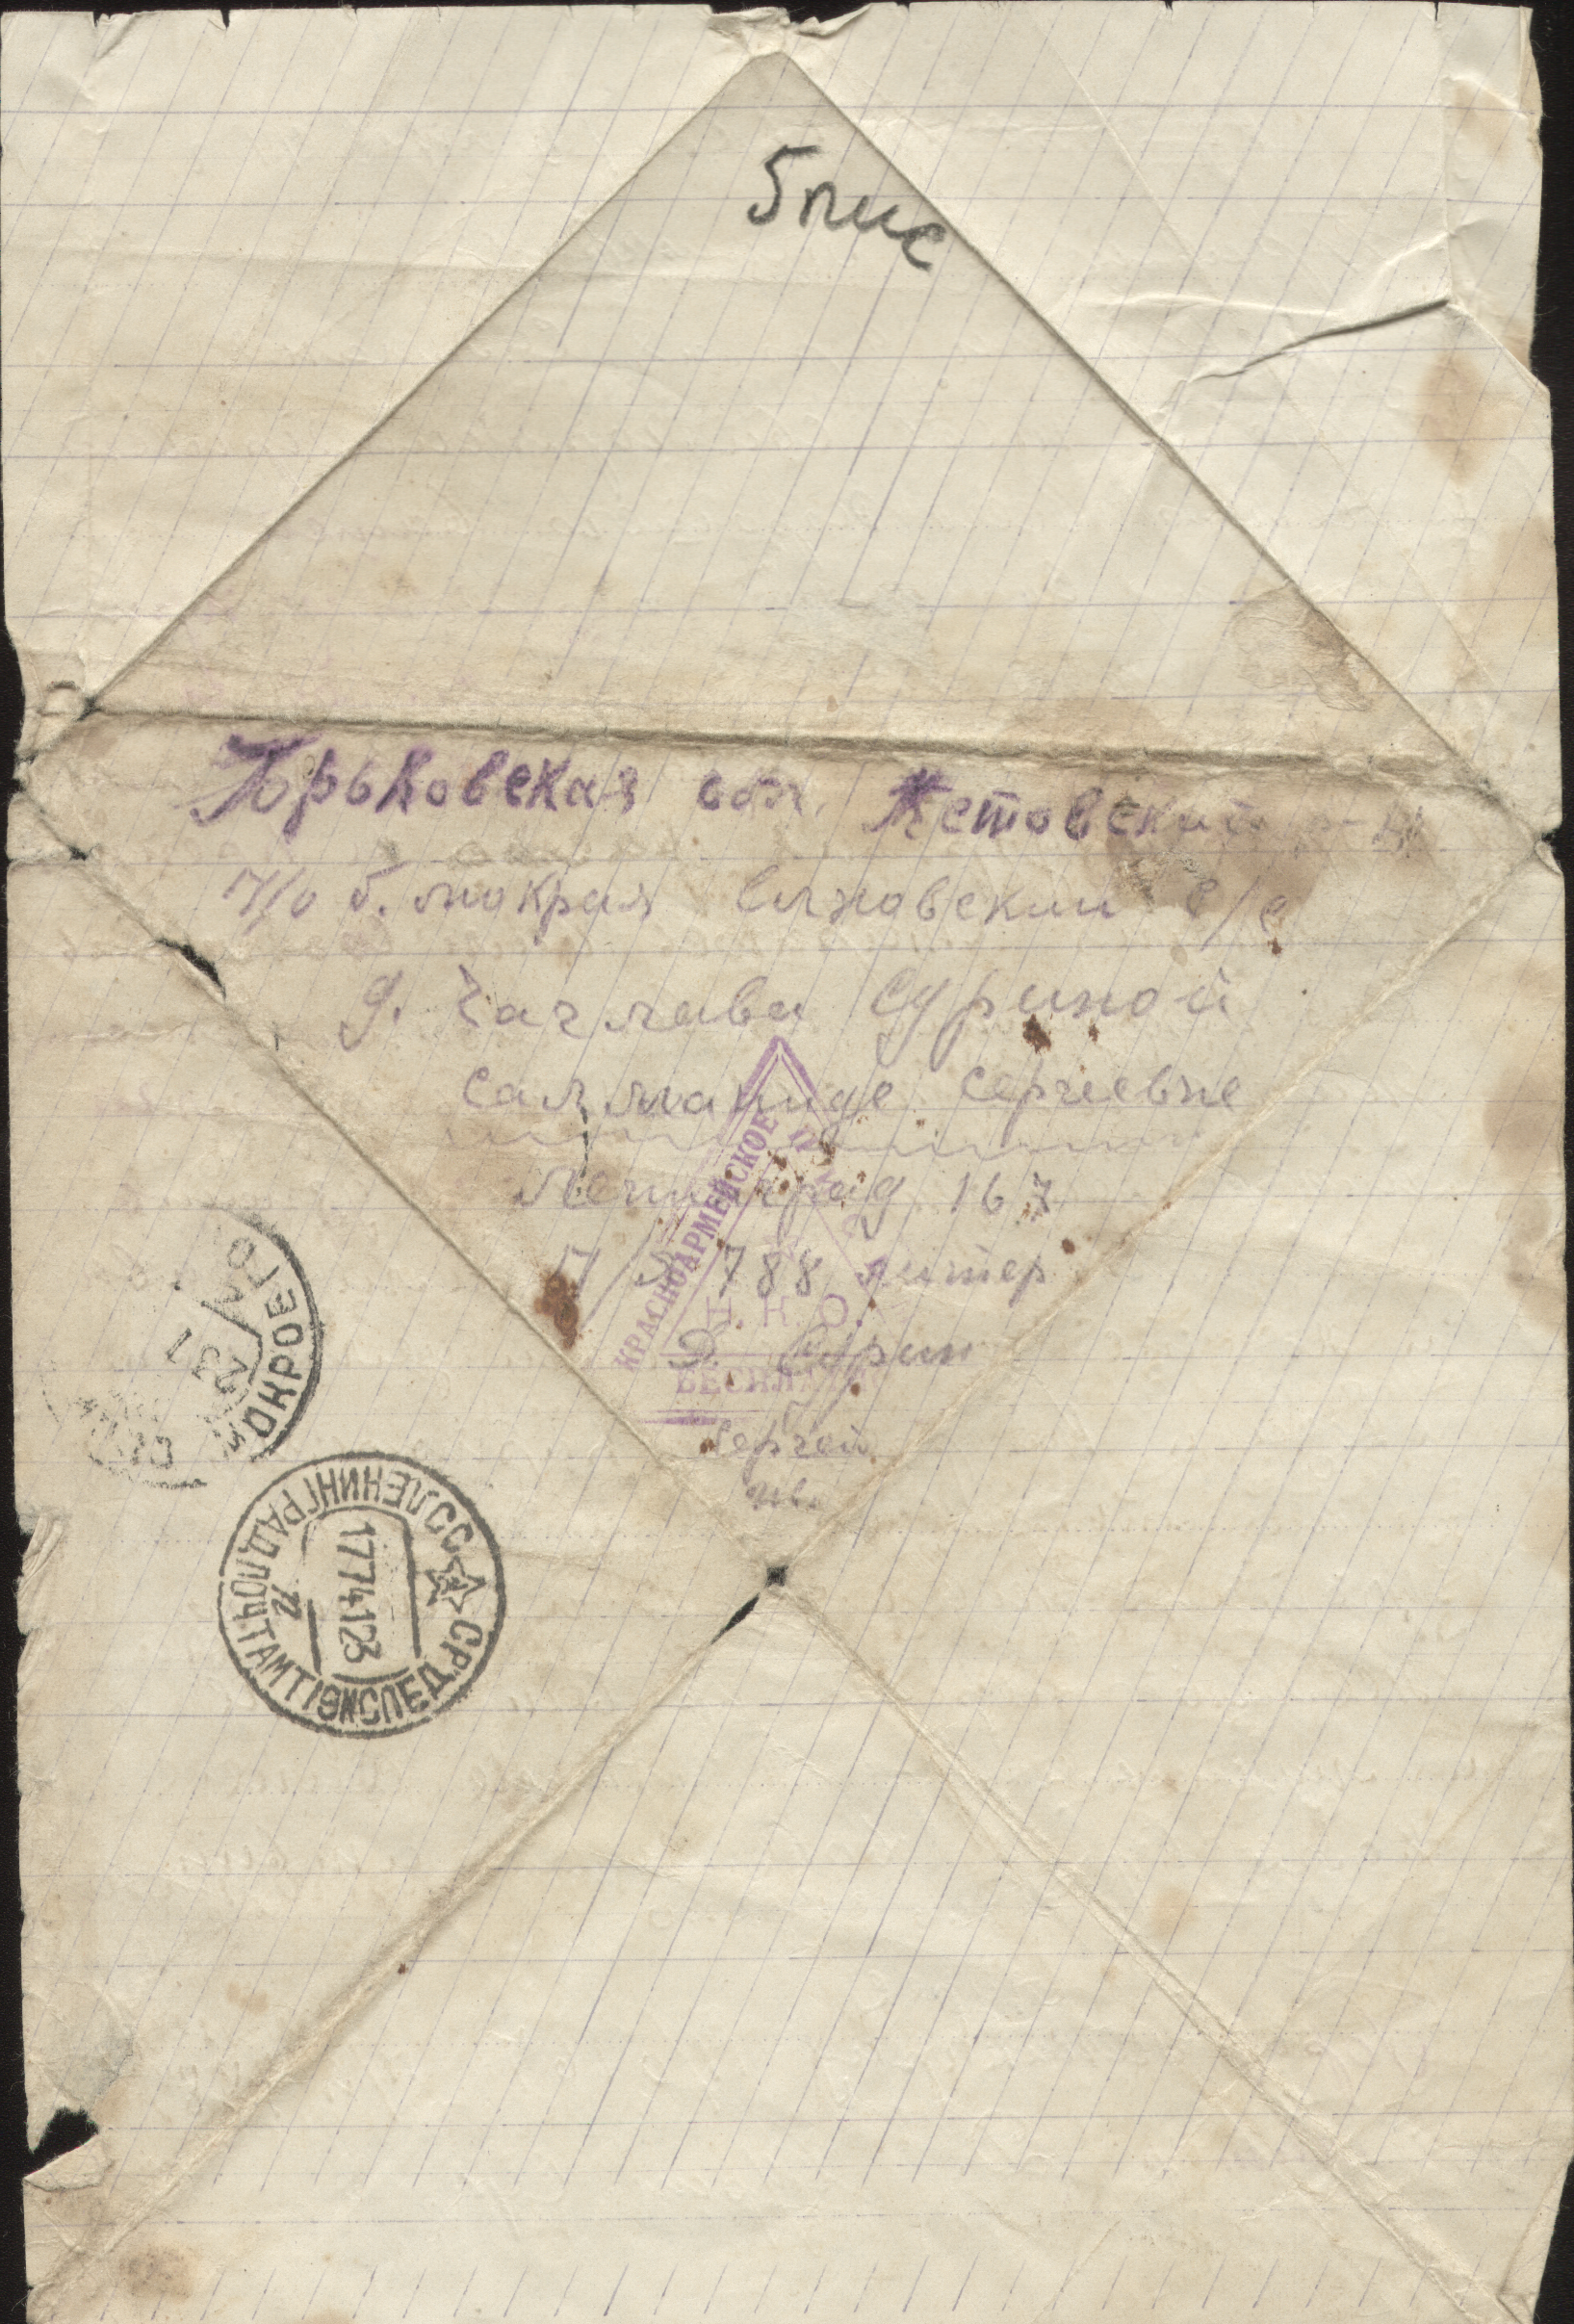 5 пис
Горьковская обл. Кстовский р-н
П/о б. мокрая Слховский с/с
д. Чаглава Суриной
Салманиде Сергеевне
Ленинград 167
П/Я 788 литер
Д Сурин
Сергей
Ив.
КРАСНОАРМЕЙСКОЕ
Н.К.О.
БЕСПЛАТНО
МОКРОЕ
ЛЕНИНГРАД ПОЧТАМТ 1 ЭКСПЕД
СССР
17 7 41 23